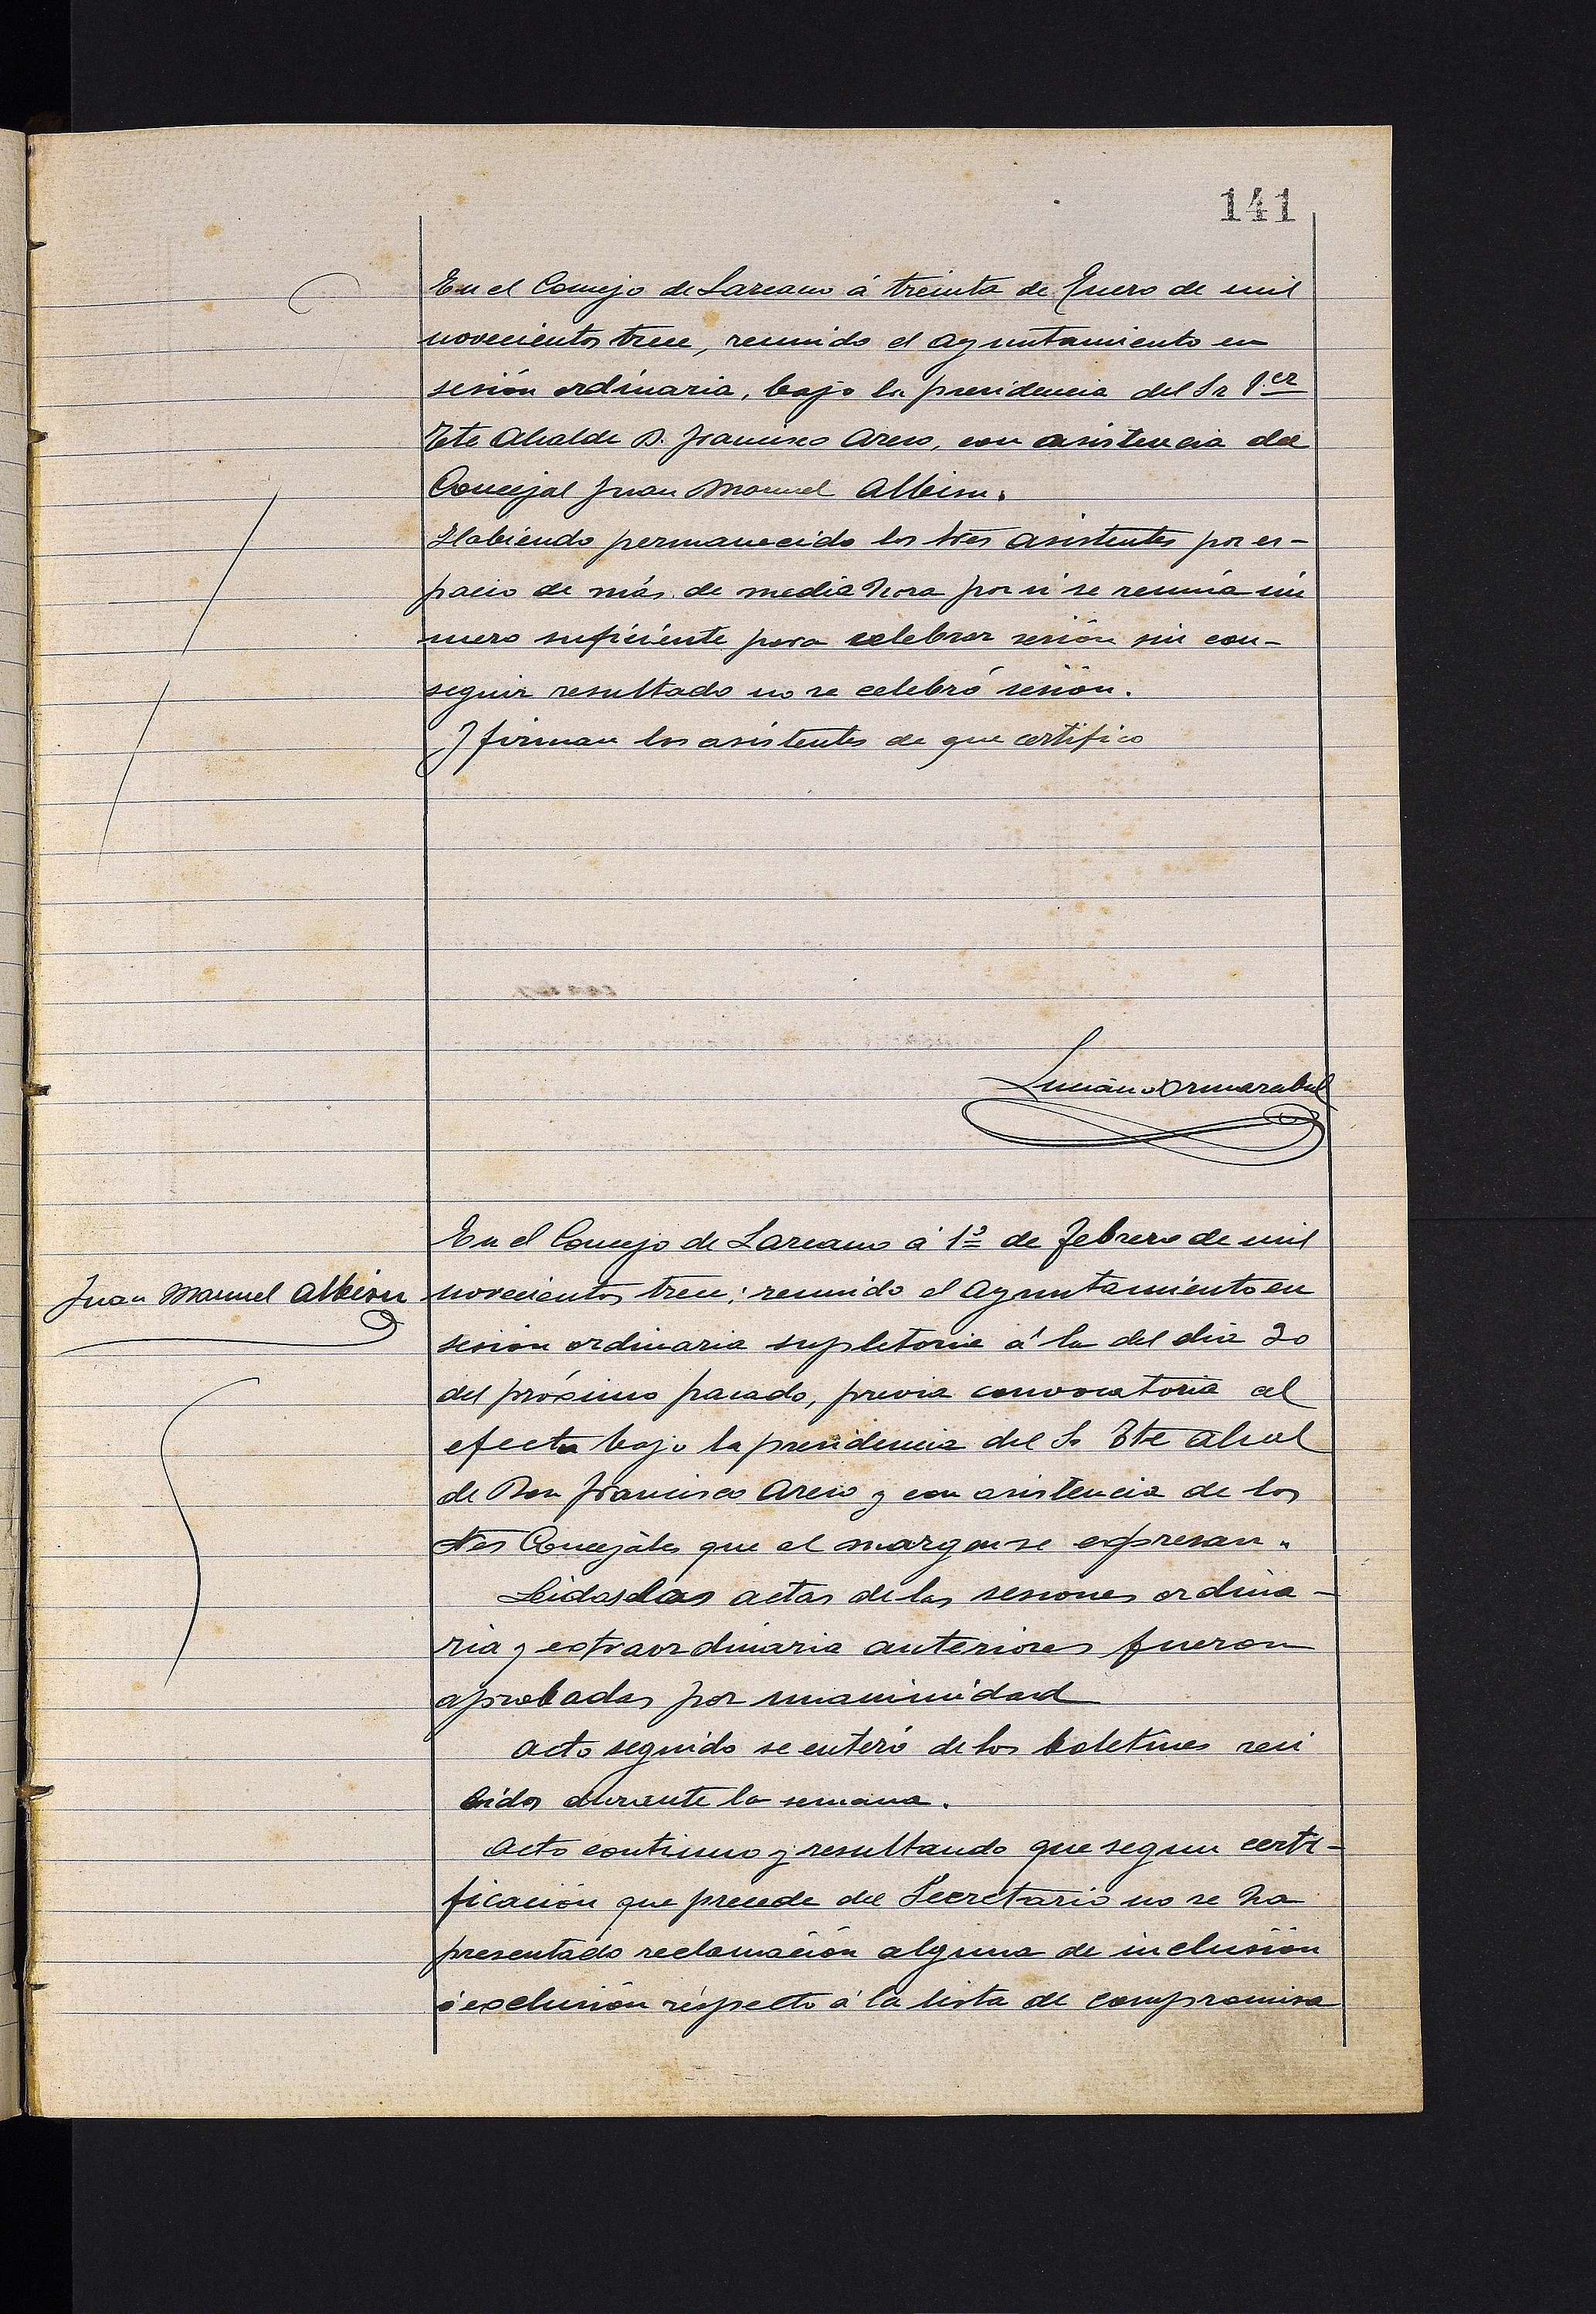 141
En el Concejo de Lazcano á treinta de Enero de mil
novecientos trece, reunido el Ayuntamiento en
sesión ordinaria, bajo la presidencia del Sr 1.er
Tte Alcalde D. Francisco Areso, con asistencia del
Concejal Juan Manuel Albisu.
Habiendo permanecido los tres asistentes por es-
pacio de más de media hora por si se reunia nú
mero suficiente para celebrar sesión sin con-
seguir resultado no se celebró sesión.
Y firman los asistentes de que certifico
Luciano Ormazabal
En el Concejo de Lazcano á 1º de Febrero de mil
Juan Manuel Albisu
novecientos trece; reunido el Ayuntamiento en
sesión ordinaria supletoria á la del dia 30
del próximo pasado, previa convocatoria al
efecto bajo la presidencia del Sr Tte Alcal
de Don Francisco Areso y con asistencia de los
tres Concejales que al margen se expresan.
Leidas las actas de las sesiones ordina-
ria y extraordinaria anteriores fueron
aprobadas por unanimidad
Acto seguido se enteró de los boletines reci
bidos durante la semana.
Acto continuo y resultando que segun certi-
ficación que precede del Secretario no se ha
presentado reclamación alguna de inclusión
ó exclusión respecto á la lista de compromisa